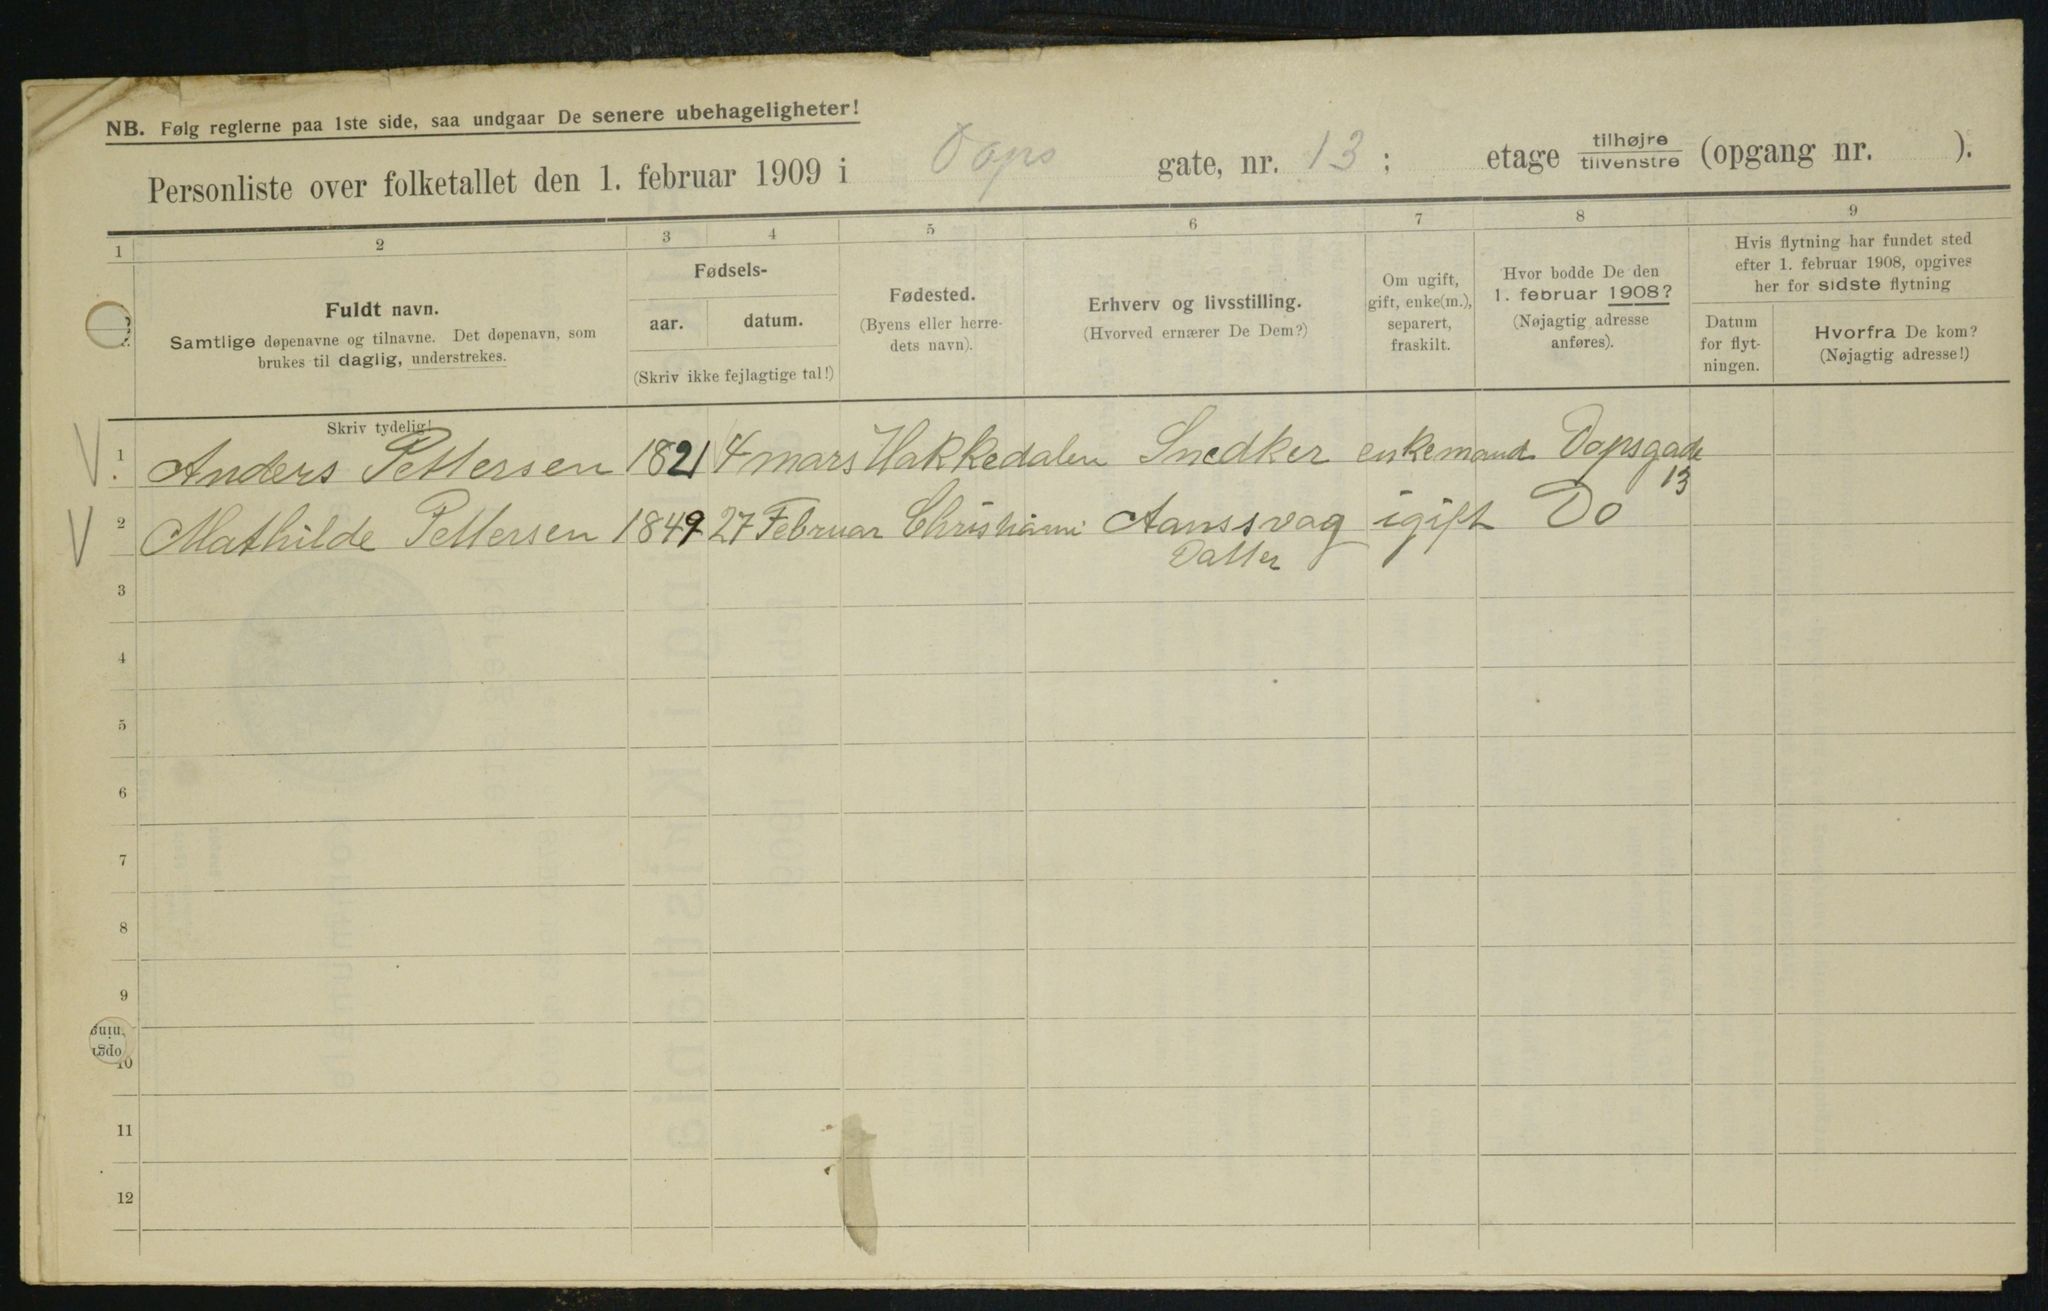 NB. Følg reglerne paa 1ste side, saa undgaar De senere ubehageligheter!
Personliste over folketallet den 1. februar 1909 i Dops gate, nr. 13 ; etage tilhøjre/tilvenstre (opgang nr. ).
1 2 3 4 5 6 7 8 9
Fuldt navn.
Samtlige døpenavne og tilnavne. Det døpenavn, som
brukes til daglig, understrekes.
Skriv tydelig!
Fødsels-
aar. datum.
(Skriv ikke fejlagtige tal!)
Fødested.
(Byens eller herre-
dets navn).
Erhverv og livsstilling.
(Hvorved ernærer De Dem?)
Om ugift,
gift, enke(m.),
separert,
fraskilt.
Hvor bodde De den
1. februar 1908?
(Nøjagtig adresse
anføres).
Hvis flytning har fundet sted
efter 1. februar 1908, opgives
her for sidste flytning
Datum
for flyt-
ningen.
Hvorfra De kom?
(Nøjagtig adresse!)
1 Anders Pettersen 1821 4 mars Hakkedalen Snedker enkemand Dopsgade
13
2 Mathilde Pettersen 1849 27 Februar Christiania Aanssvag igift Do
Datter
3
4
5
6
7
8
9
10
11
12